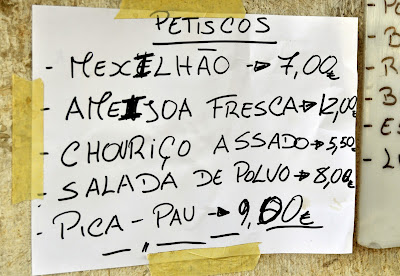 PETISCOS
- MEXILHÃO → 7,00€
- AMEIJOA FRESCA → 12,00€
- CHOURIÇO ASSADO → 5,50€
- SALADA DE POLVO → 8,00€
- PICA-PAU → 9,00€